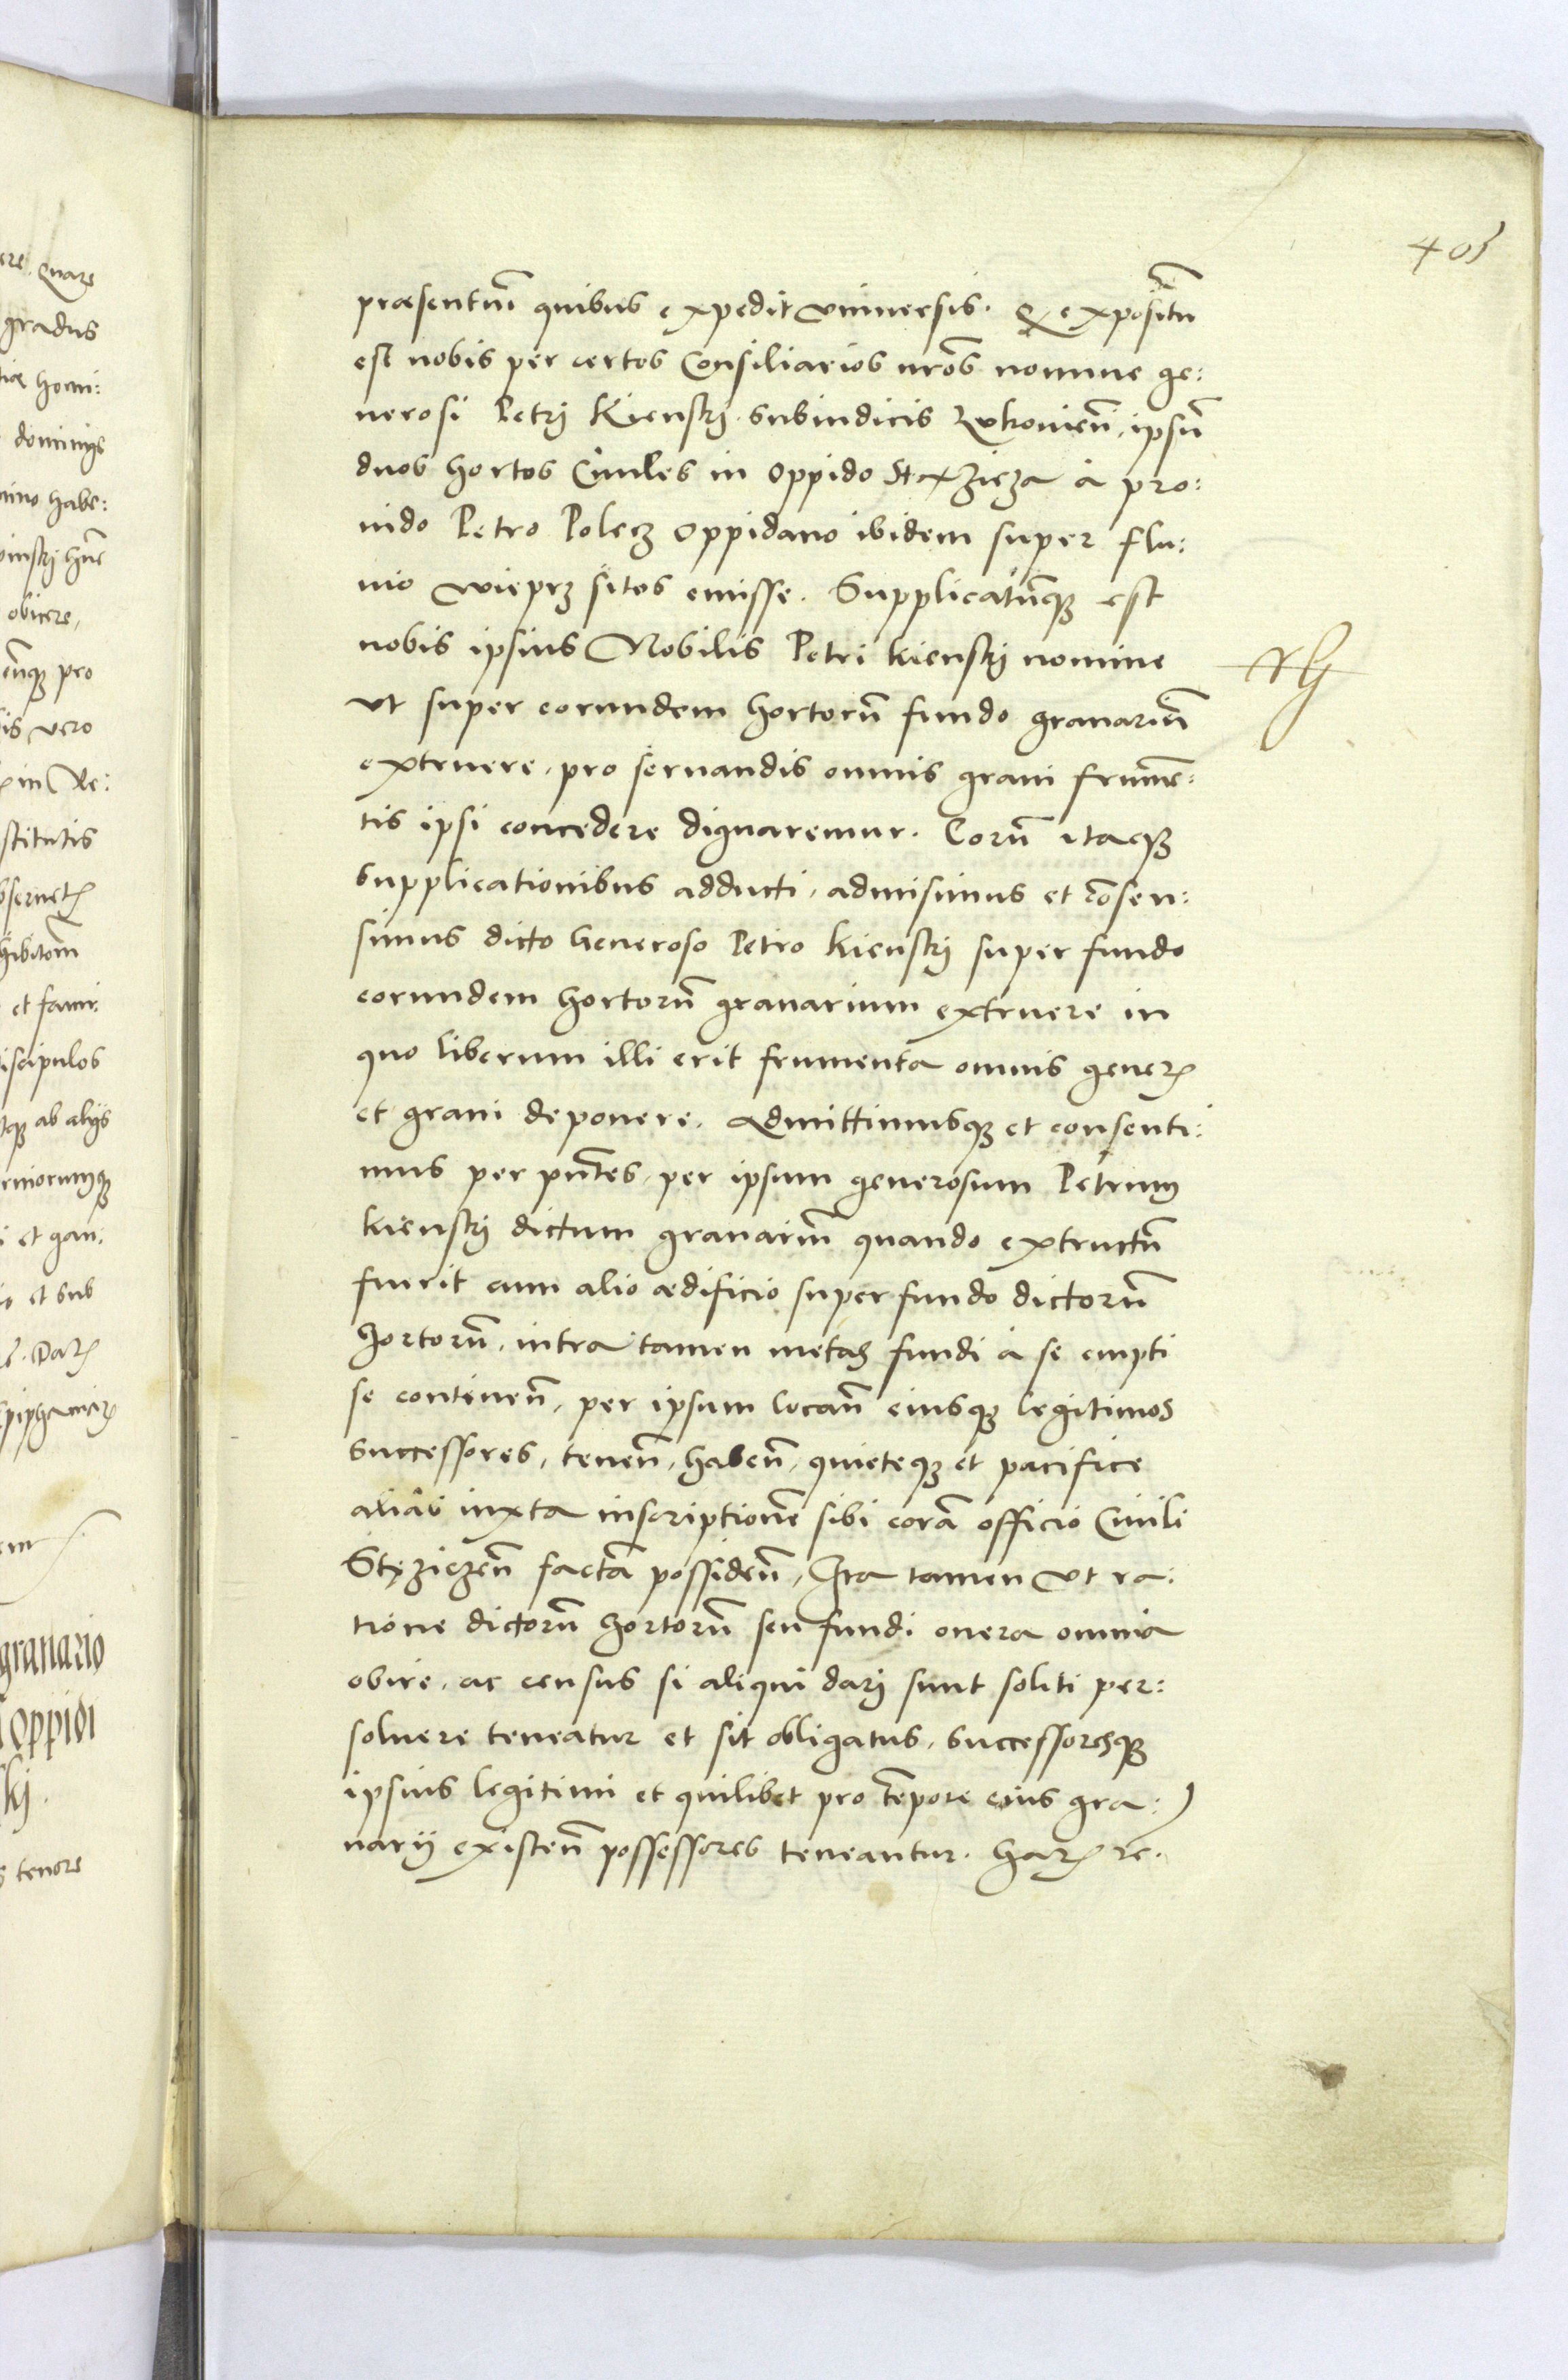 405
præsentium̄ quibus expedit vniuersis. Q expositū
est nobis per certos Consiliarios nr̃os nomine ge:
nerosi Petrj Kienskj subiudicis Lukouien̄, ipsum̄
duos hortos Ciuiles in oppido Stązicza à pro:
uido Petro Polecz oppidano ibidem super flu:
uio Wieprz sitos emisse. Supplicatum̄q est
nobis ipsius Nobilis Petri Kienskj nomine
vt super eorundem hortorum̄ fundo granarium̄
extruere, pro seruandis omnis grani frumē:
tis ipsi concedere dignaremur. Eorum̄ itaq
supplicationibus adducti, admisimus et cōsen:
simus dicto Generoso Petro Kienskj super fundo
eorundem hortorum̄ granarium extruere in
quo liberum illi erit frumenta omnis gener
et grani deponere. Admittimusq et consenti:
mus per pn̄tes, per ipsum generosum Petrum
Kienskj dictum granarium̄ quando extructum̄
fuerit cum alio ædificio super fundo dictorum̄
hortorum̄, intra tamen metas fundi à se empti
se continen̄, per ipsum locan̄ eiusq legitimos
successores, tenen̄, haben̄, quieteq et pacifice
aliàs iuxta inscriptionē sibi corā officio Ciuili
Stęziczen̄ factā possiden̄, Ita tamen vt ra:
tione dictorum̄ hortorum̄ seu fundi onera omnia
obire, ac census si aliqui darj sunt soliti per:
soluere teneatur et sit obligatus, successoresq
ipsius legitimi et quilibet pro tēpore eius gra:
narij existen̄ possessores teneantur. Har re.